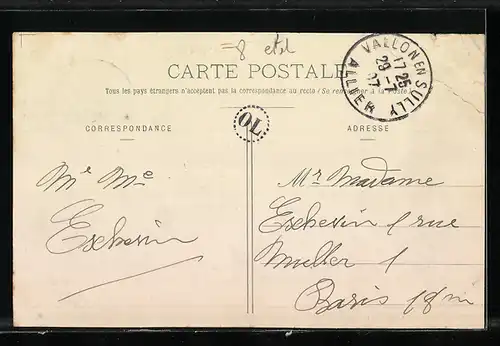 8
CARTE POSTALE
Tous les pays étrangers n'acceptent pas la correspondance au recto (Se renseigner à la Poste).
VALLON EN SULLY
17 25
29 - 7
07
ALLIER
OL
CORRESPONDANCE
ADRESSE
Mr Me
Eschevin
Mr Madame
Eschevin 1 rue
Muller 1
Paris 18m